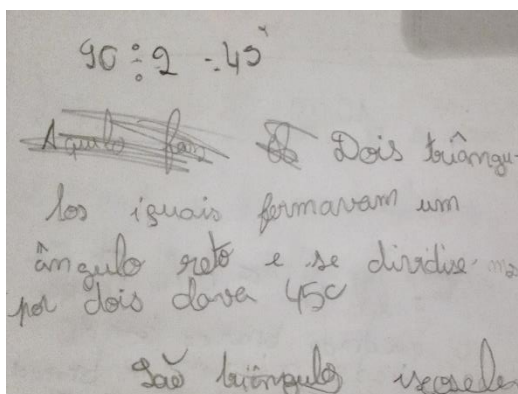 90 ÷ 2 = 45°
Aquilo faz Dois triângu-
los iguais formavam um
ângulo reto e se dividise-mos
por dois dava 45º
São triângulos isosceles